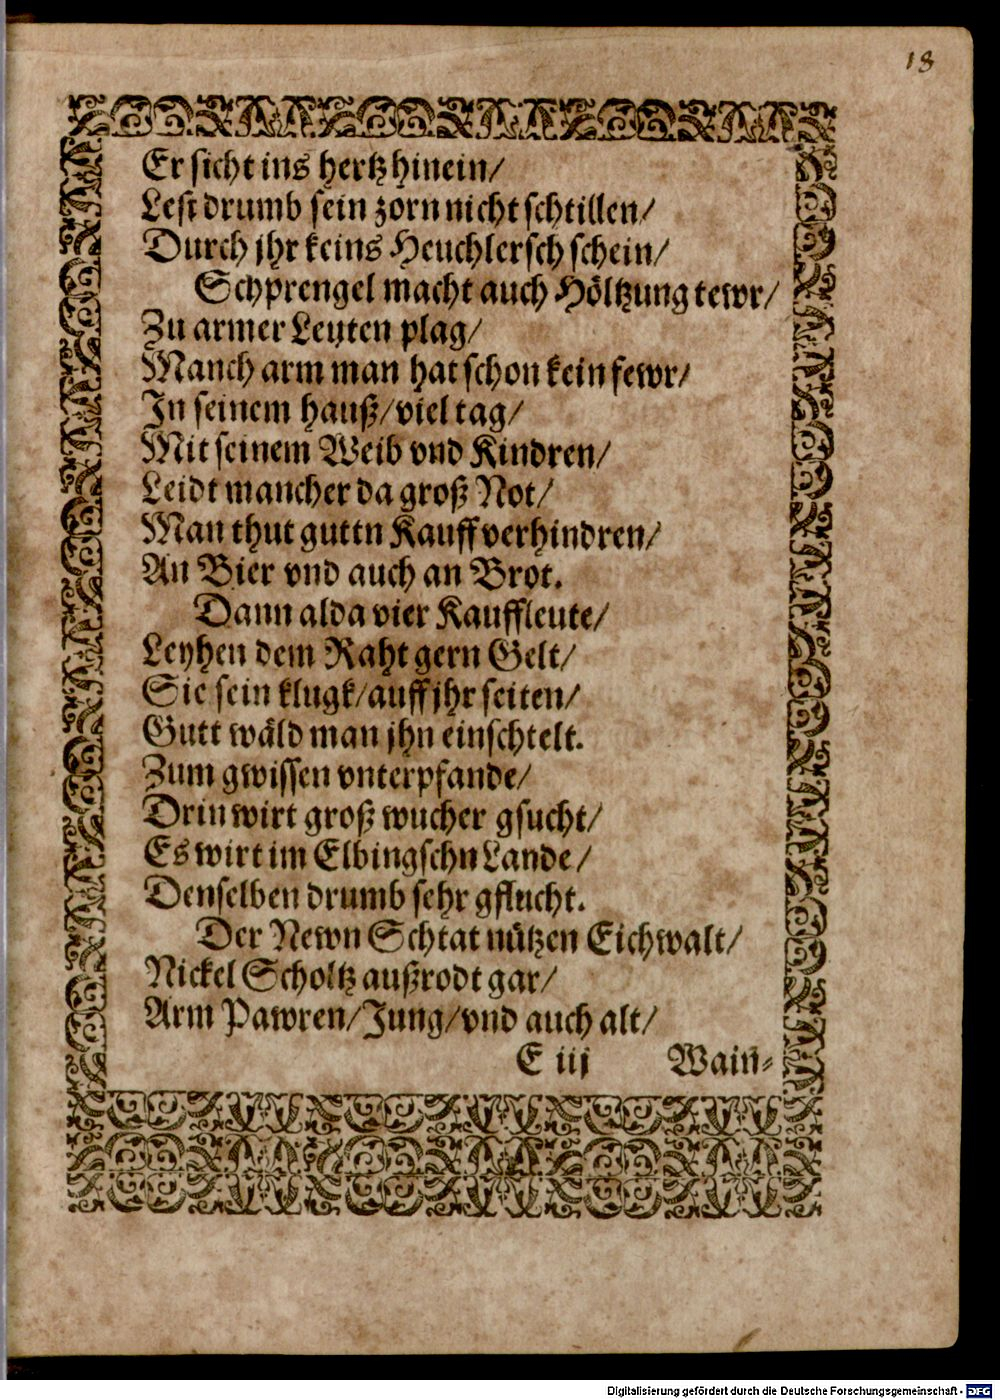 18
Er sicht ins hertz hinein/
Lest drumb sein zorn nicht schtillen/
Durch jhr keins Heuchlersch schein/
Schprengel macht auch Höltzung tewr/
Zu armer Leyten plag/
Manch arm man hat schon kein fewr/
In seinem hauß/viel tag/
Mit seinem Weib vnd Kindren/
Leidt mancher da groß Not/
Man thut guttn Kauff verhindren/
An Bier vnd auch an Brot.
Dann alda vier Kauffleute/
Leyhen dem Raht gern Gelt/
Sie sein klugk/auff jhr seiten/
Gutt wäld man jhn einschtelt.
Zum gwissen vnterpfande/
Drin wirt groß wucher gsucht/
Es wirt im Elbingschn Lande/
Denselben drumb sehr gflucht.
Der Newn Schtat nützen Eichwalt/
Nickel Scholtz außrodt gar/
Arm Pawren/Jung/vnd auch alt/
E iij Wain-
Digitalisierung gefördert durch die Deutsche Forschungsgemeinschaft - DFG